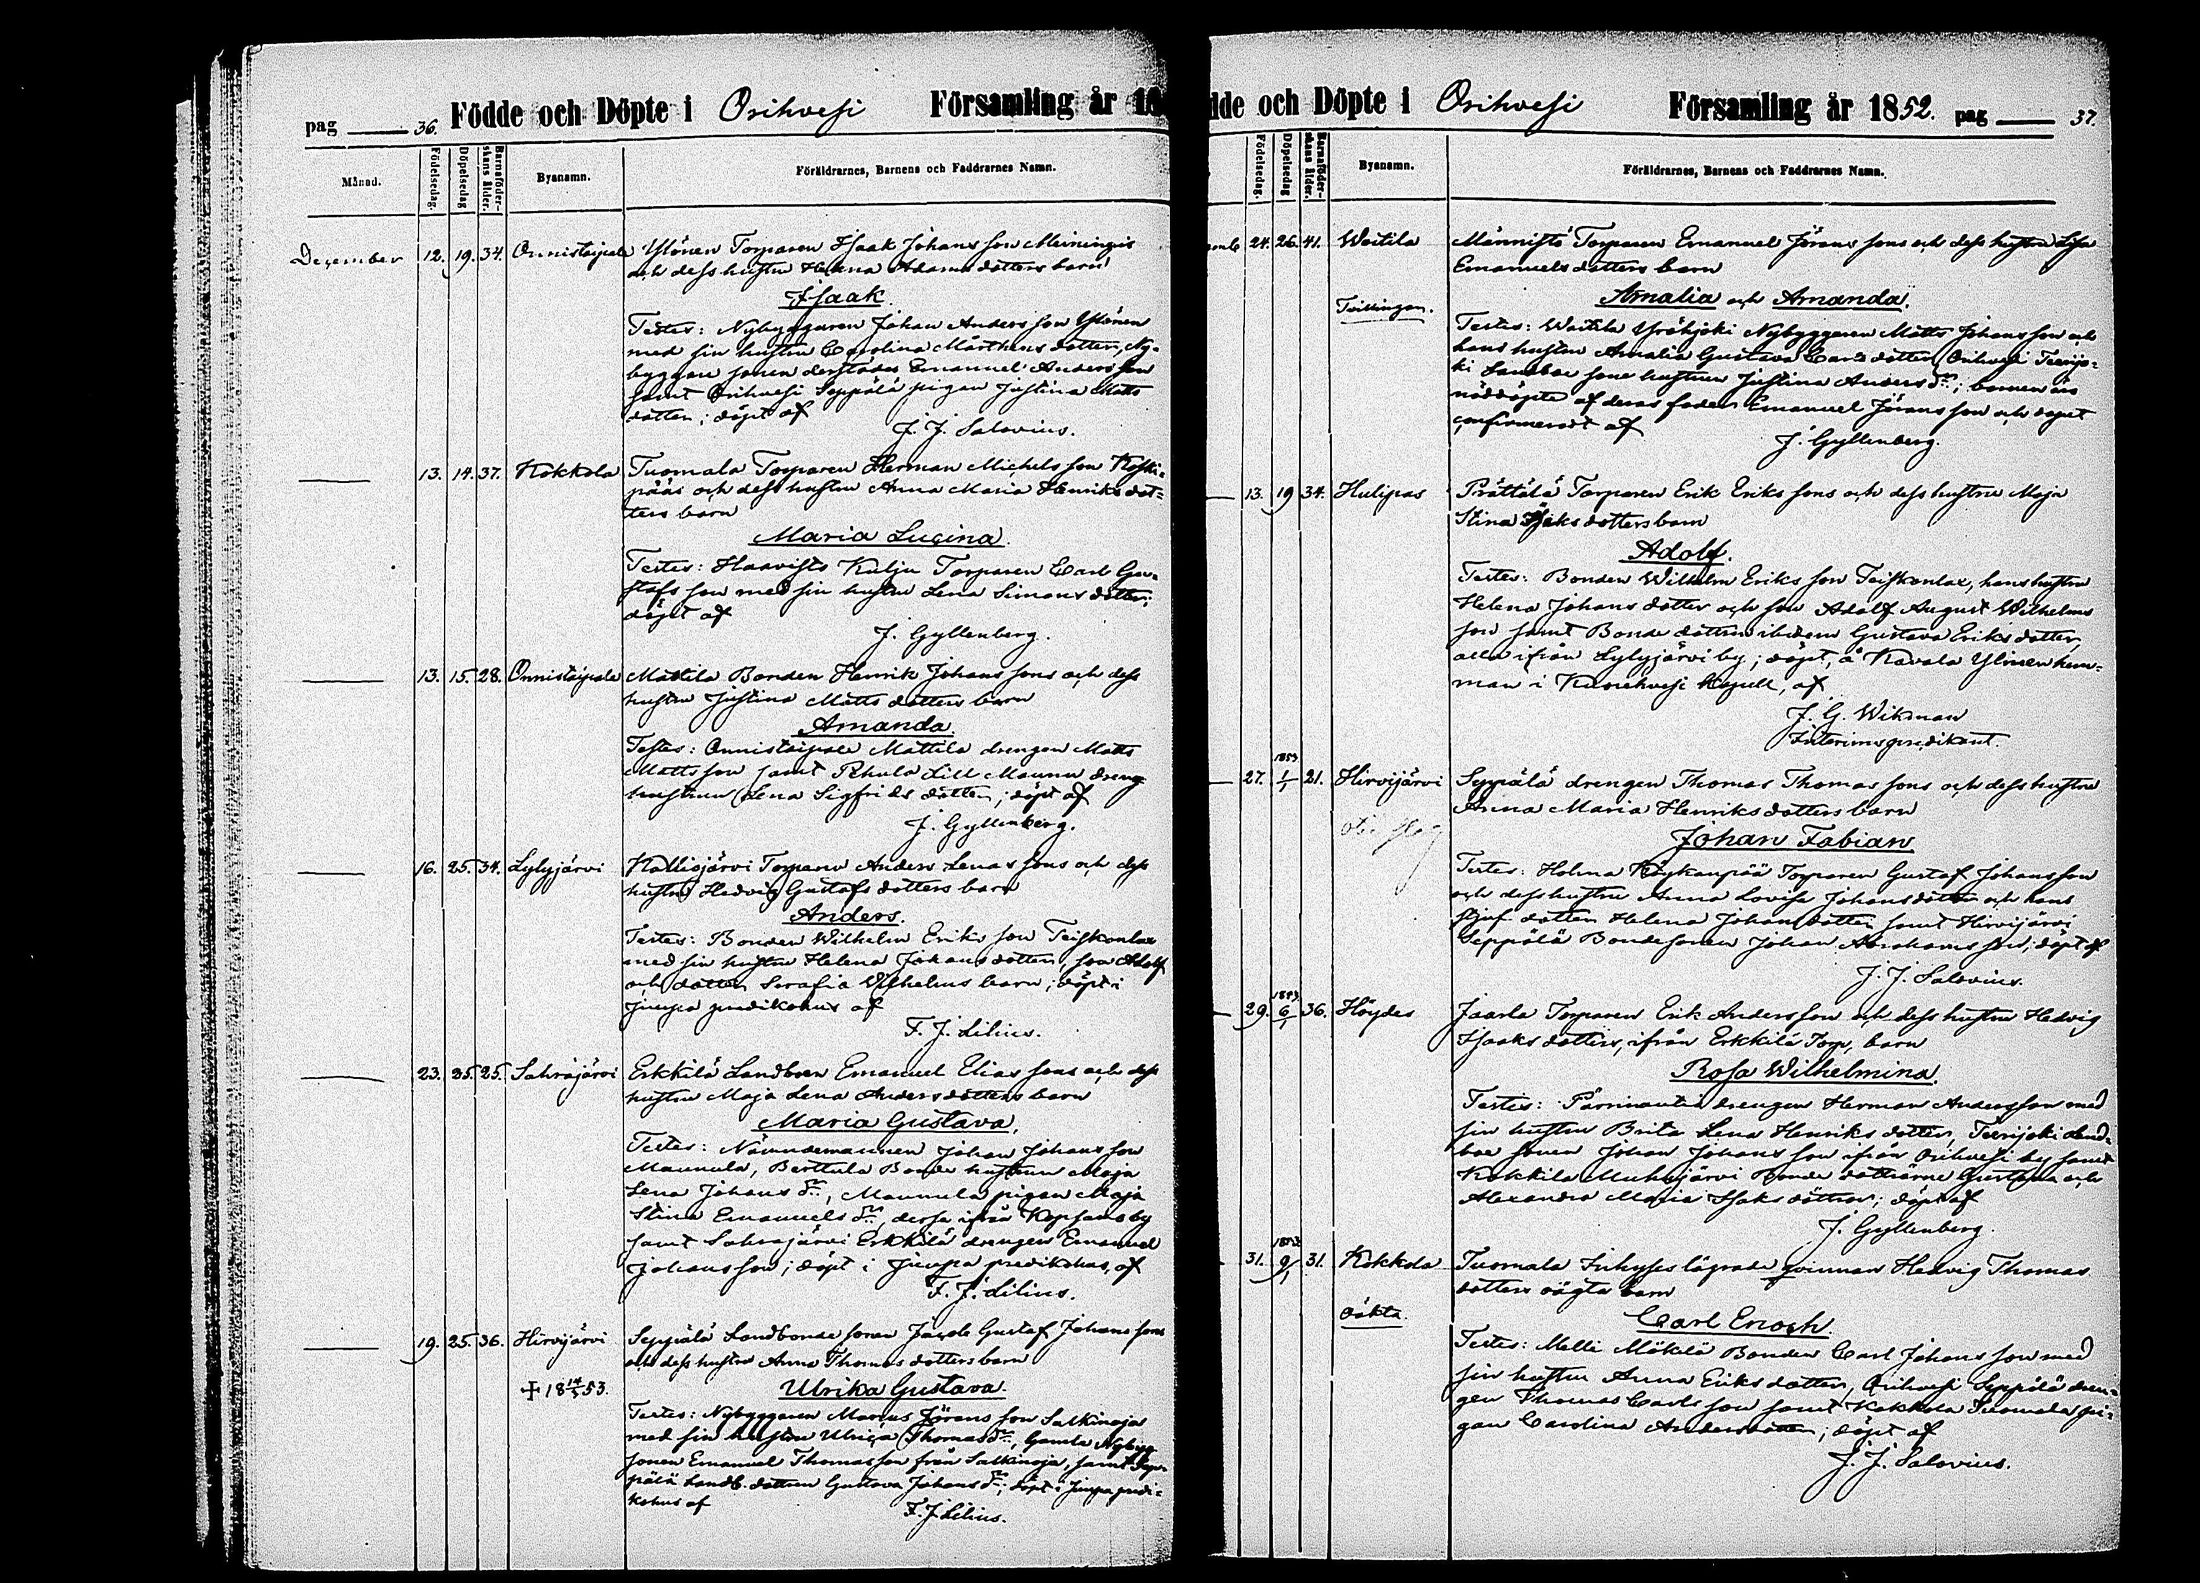 pag 36. Födde och Döpte i Orihvesi Församling år 18
Månad. Födelsedag. Döpelsedag Barnaföderskans ålder. Bysnamn. Föräldrarnes, Barnens och Faddrarnes Namn.
December 12. 19. 34. Onnistaipale Ylönen Torparen Isaak Johansson Meiningis
och dess hustru Helena Adamsdotters barn
Isaak.
Testes: Nybyggaren Johan Andersson Ylönen
med sin hustru Carolina Mårthensdotter, Ny-
byggare sonen derstädes Emanuel Andersson
samt Orihvesi Seppälä pigan Justina Matts
dotter; döpt af
J. J. Salovius.
13. 14. 37. Kokkola Tuomala Torparen Herman Michelsson Koski-
pääs och dess hustru Anna Maria Henriksdot-
ters barn
Maria Lucina.
Testes: Haavisto Kulju Torparen Carl Gu-
stafsson med sin hustru Lena Simonsdotter;
döpt af
J. Gyllenberg.
13. 15. 28. Onnistaipale Mattila Bonden Henrik Johanssons och dess
hustru Justina Mattsdotters barn
Amanda.
Testes: Onnistaipale Mattila drengen Matts
Mattsson samt Pehula Lill Maunu dreng
hustrun Lena Sigfridsdotter; döpt af
J. Gyllenberg.
16. 25. 34. Lylyjärvi Kalliojärvi Torparen Anders Lenassons och dess
hustru Hedvig Gustafsdotters barn
Anders.
Testes: Bonden Wilhelm Eriksson Teiskonlax
med sin hustru Helena Johansdotter, son Adolf
och dotter Serafia Wilhelms barn; döpt i
Juupa predikohus af
F. J. Lilius.
23. 25. 25. Sahrajärvi Erkkilä Landboen Emanuel Eliassons och dess
hustru Maja Lena Andersdotters barn
Maria Gustava.
Testes: Nämndemannen Johan Johansson
Maunula, Berttula Bonde hustrun Maja
Lena Johans dr., Maunula pigan Maja
Stina Emanuels dr., dessa ifrån Kopsamo by
samt Sahrajärvi Erkkilä drengen Emanuel
Johansson; döpt i Juupa predikohus, af
F. J. Lilius.
19. 25. 36. Hirvijärvi Seppälä Landbonde sonen Gustaf Johanssons
och dess hustru Anna Thomasdotters barn
+ 18 14/5 53. Ulrika Gustava.
Testes: Nybyggaren Marius Jöransson Salkinoja
med sin hustru Ulrica Thomas dr., Gamla Nybygg
sonen Emanuel Thomasson från Salkinoja, samt Sep-
pälä Landb. dottren Gustava Johans dr.; döpt i Juupa predi-
kohus af
F. J. Lilius.
dde och Döpte i Orihvesi Församling år 1852. pag 37.
Födelsedag. Döpelsedag Barnaföderskans ålder. Bysnamn. Föräldrarnes, Barnens och Faddrarnes Namn.
24. 26. 41. Waitila Männistö Torparen Emanuel Jöranssons och dess hustru Lisa
Emanuelsdotters barn
Tvillingar. Amalia och Amanda.
Testes: Waitila Yröhjoki Nybyggaren Matts Johansson och
hans hustru Amalia Gustava Carlsdotter, Orihvesi Teerijo-
ki Landboe sone hustrun Justina Anders dr.; barnen äro
nöddöpta af deras fader Emanuel Jöransson och dopet
confirmeradt af
J. Gyllenberg.
13. 19 34. Hulipas Prättälä Torparen Erik Erikssons och dess hustru Maja
Stina Isaksdotters barn
Adolf.
Testes: Bonden Wilhelm Eriksson Teiskonlax, hans hustru
Helena Johansdotter och son Adolf August Wilhelms
son samt Bonde dottren ibidem Gustava Eriksdotter,
alla ifrån Lylyjärvi by; döpt, å Kavala Ylinen hem-
man i Kuorehvesi Kapell, af
J. G. Wikman
Interimspredikant.
27. 1853 1/1 21. Hirvijärvi Seppälä drengen Thomas Thomassons och dess hustru
Anna Maria Henriksdotters barn
Johan Fabian
Testes: Holma Köykänpää Torparen Gustaf Johansson
och dess hustru Anna Lovisa Johansdotter och hans
stjuf dotter Helena Johansdotter samt Hirvijärvi
Seppälä Bondesonen Johan Abrahamsson; döpt af
J. J. Salovius.
29. 1853 6/1 36. Höydes Jaarla Torparen Erik Andersson och dess hustru Hedvig
Isaaksdotters, ifrån Erkkilä Torp, barn
Rosa Wilhelmina.
Testes: Pärrinautio drengen Herman Andersson med
sin hustru Brita Lena Henriksdotter, Teerijoki Land-
boe sonen Johan Johansson ifrån Orihvesi by samt
Kokkila Muhojärvi Bonde döttrarne Gustava och
Alexandra Maria Isaksdöttrar; döpt af
J. Gyllenberg.
31. 1853 9/1 31. Kokkola Tuomala Inhyses lägrade qvinnan Hedvig Thomas
dotters oägta barn
oäkta. Carl Enoch.
Testes: Melli Mökelä Bonden Carl Johansson med
sin hustru Anna Eriksdotter, Orihvesi Seppälä dren-
gen Thomas Carlsson samt Kokkola Tuomala pi-
gan Carolina Andersdotter; döpt af
J. J. Salovius.